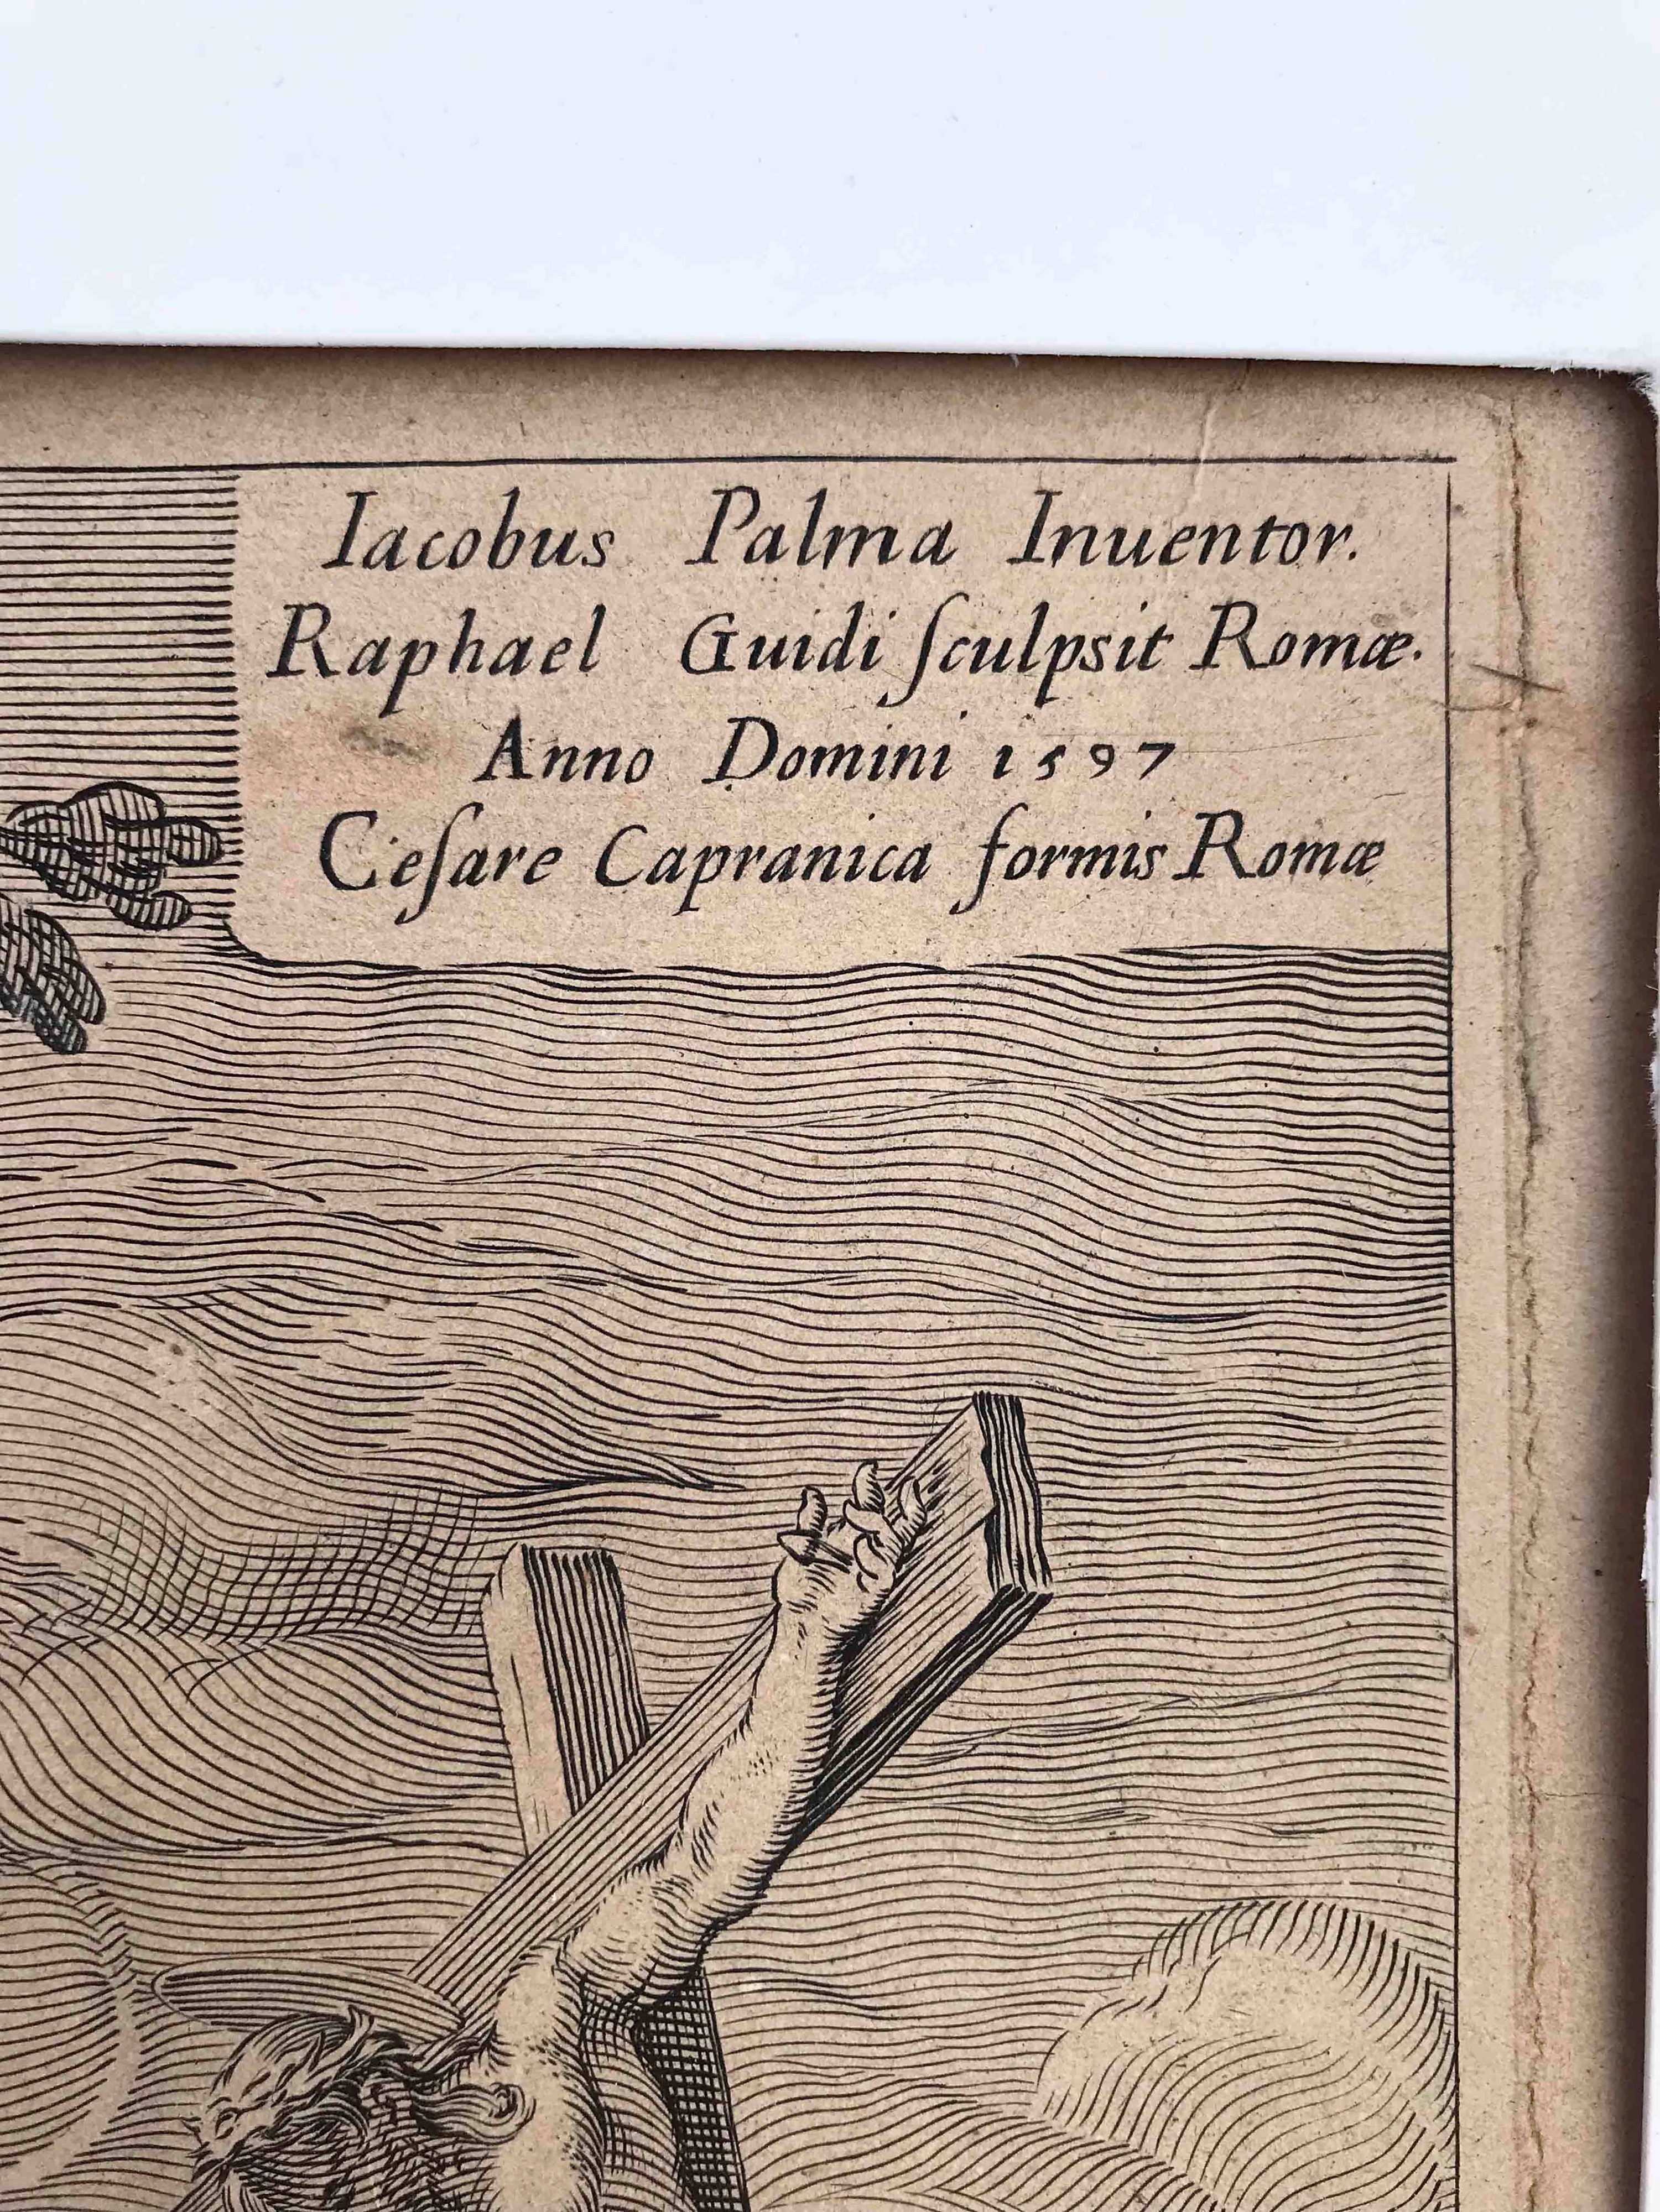 Iacobus Palma Inuentor.
Raphael Guidi ſculpsit Romæ.
Anno Domini 1597
Ceſare Capranica formis Romæ